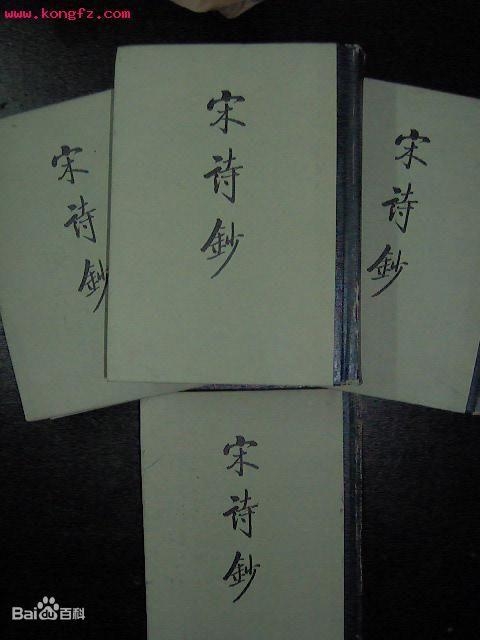 www.kongfz.com
宋诗鈔
宋诗鈔
宋诗鈔
宋诗鈔
Bai du 百科